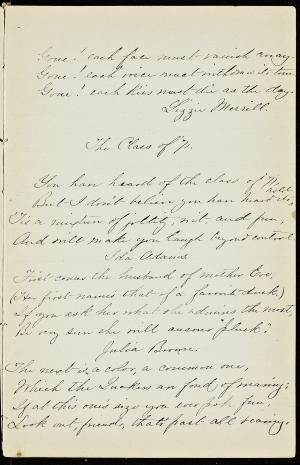 Gone! each face must vanish away.
Gone! each voice must withdraw its tone
Gone! each kiss must die as the day.
Lizzie Merrill.
The Class of '71.
You have heard of the class of '71
But I don't believe you have heard it told
'Tis a mixture of jollity, wit, and fun,
And will make you laugh beyond control
Ida Adams
First comes the husband of mother Eve,
(Her first name's that of a favorite duck)
If you ask her what she admires the most,
Be very sure she will answer "pluck".
Julia Brown.
The next is a color, a common one,
Which the Quakers are fond of wearing;
If at this one's size you ever poke fun,
Look out, friends, that's past all bearing.